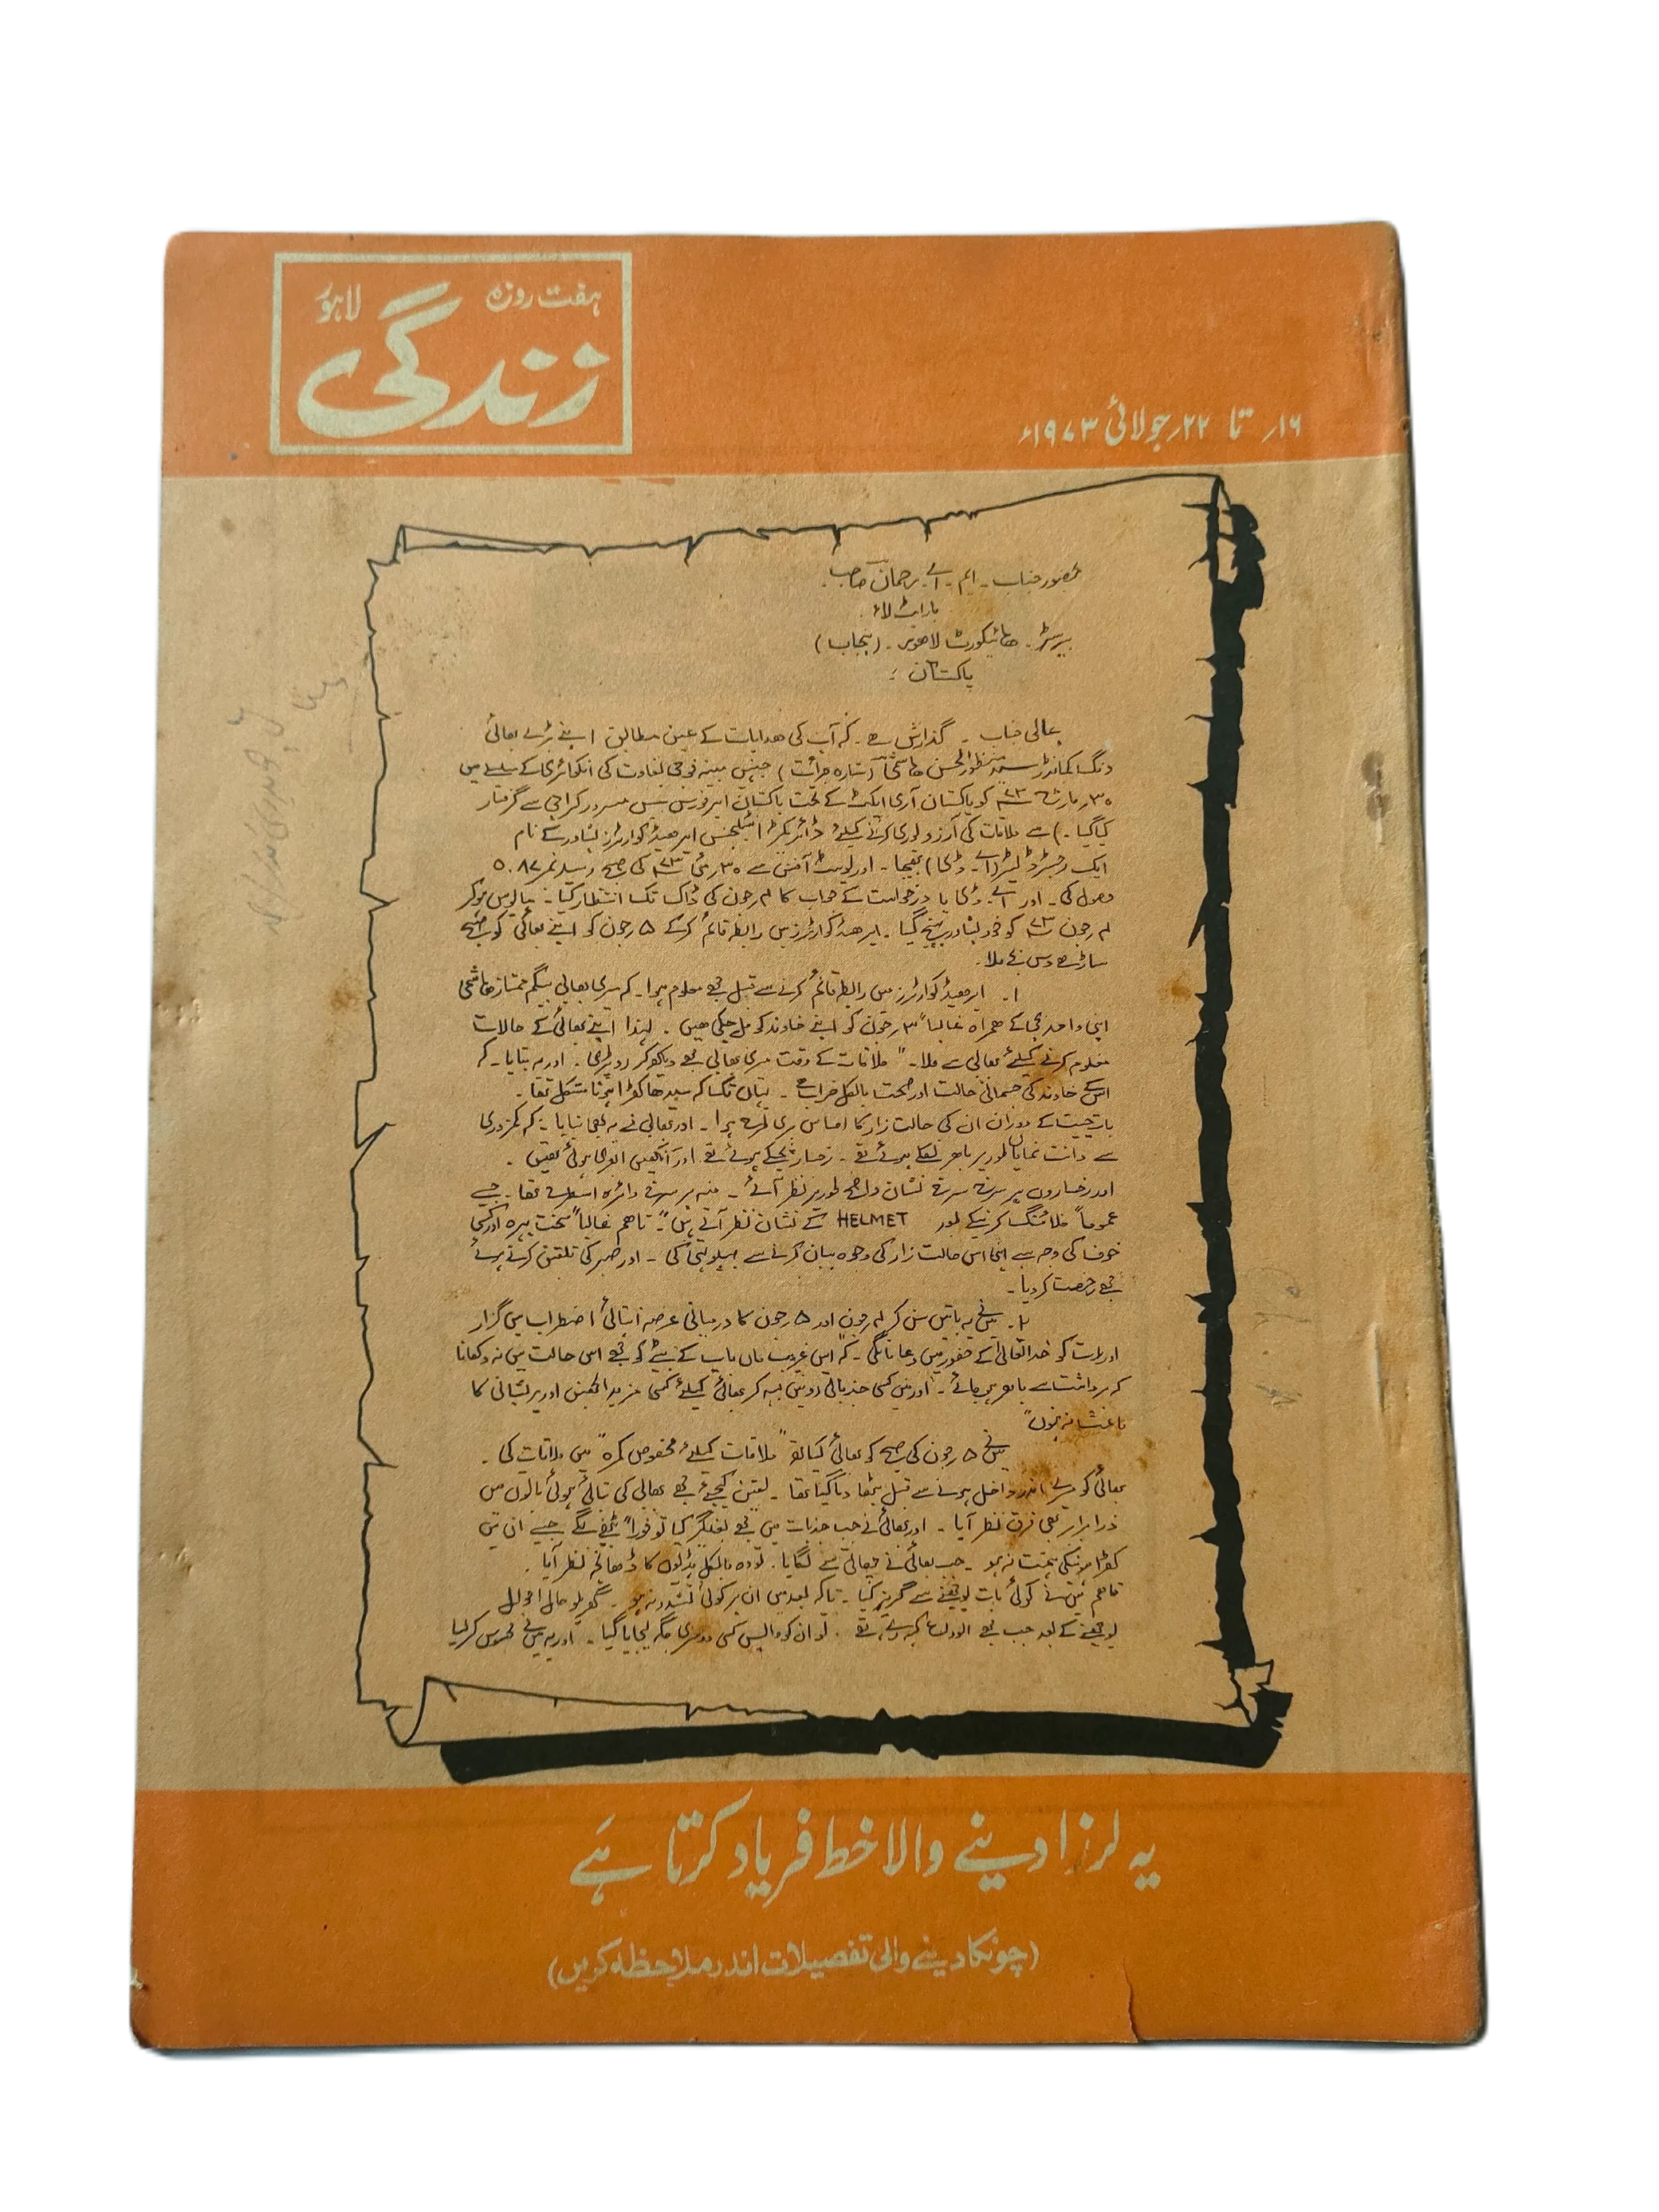 ہفت روزہ
لاہور
زندگی
۱۶؍ تا ۲۲؍ جولائی ۱۹۷۳ء
بحضور جناب ۔ ایم ۔ اے ۔ رحمان صاحب ۔
بار ایٹ لاء ۔
بیرسٹر ۔ ھائیکورٹ لاھور ۔ (پنجاب)
پاکستان :
عالی جناب ۔ گذارش ہے ۔ کہ آپ کی ھدایات کے عین مطابق اپنے بڑے بھائی
ونگ کمانڈر سید منظور الحسن ھاشمی (ستارہ جرأت) جنہیں مبینہ فوجی بغاوت کی انکوائری کے سلسلے میں
۳۰؍ مارچ ۷۳ کو پاکستان آرمی ایکٹ کے تحت پاکستان ایرفورس بیس مسرور کراچی سے گرفتار
کیا گیا ۔) سے ملاقات کی آرزو پوری کرنے کیلئے ڈائریکٹر انٹیلجنس ایر ھیڈکوارٹرز پشاور کے نام
ایک رجسٹرڈ لیٹر (اے ۔ ڈی) بھیجا ۔ اور پوسٹ آفس سے ۳۰؍ مئی ۷۳ کی صبح رسید نمبر ۵۰۸۷
وصول کی ۔ اور اے ۔ ڈی یا درخواست کے جواب کا ۴؍ جون کی ڈاک تک انتظار کیا ۔ مایوس ہو کر
۴؍ جون ۷۳ کو خود پشاور پہنچ گیا ۔ ایر ھیڈکوارٹرز میں رابطہ قائم کر کے ۵؍ جون کو اپنے بھائی کو صبح
ساڑھے دس بجے ملا ۔
۱ ۔ ایر ھیڈ کوارٹرز میں رابطہ قائم کرنے سے قبل مجھے معلوم ہوا ۔ کہ میری بھابی بیگم ممتاز ھاشمی
اپنی واحد بچی کے ھمراہ غالباً ۳؍ جون کو اپنے خاوند کو مل چکی ھیں ۔ لہذا اپنے بھائی کے حالات
معلوم کرنے کیلئے بھابی سے ملا ۔ " ملاقات کے وقت میری بھابی مجھے دیکھ کر رو پڑی ۔ اور یہ بتایا ۔ کہ
اسکے خاوند کی جسمانی حالت اور صحت بالکل خراب ہے ۔ یہاں تک کہ سیدھا کھڑا ہونا مشکل تھا ۔
بات چیت کے دوران ان کی حالت زار کا احساس بری طرح ہوا ۔ اور بھابی نے یہ بھی بتایا ۔ کہ کمزوری
سے دانت نمایاں طور پر باھر نکلے ہوئے تھے ۔ رخسار پچکے ہوئے تھے اور آنکھیں ابھری ہوئی تھیں ۔
اور رخساروں پر سرخ سرخ نشان واضح طور پر نظر آئے ۔ منہ پر سرخ دائرہ اسطرح تھا ۔ جیسے
عموماً فلائنگ کرنیکے بعد HELMET کے نشان نظر آتے ہیں" ۔ تاھم غالباً سخت پہرہ اور کسی
خوف کی وجہ سے اپنی اس حالت زار کی وجوہ بیان کرنے سے پہلو تہی کی ۔ اور صبر کی تلقین کرتے ہوئے
مجھے رخصت کر دیا ۔
۲ ۔ میں نے یہ باتیں سن کر ۴؍ جون اور ۵؍ جون کا درمیانی عرصہ انتہائی اضطراب میں گزارا
اور رات کو خدا تعالیٰ کے حضور میں دعا مانگی ۔ کہ "اس غریب ماں باپ کے بیٹے کو مجھے اس حالت میں نہ دکھانا
کہ برداشت سے باھر ہو جائے ۔ اور میں کسی جذباتی رو میں بہہ کر بھائی کیلئے کسی مزید الجھن اور پریشانی کا
باعث نہ بنوں"
میں نے ۵؍ جون کی صبح کو بھائی کیساتھ "ملاقات کیلئے مخصوص کمرہ" میں ملاقات کی ۔
بھائی کو میرے اندر داخل ہونے سے قبل بٹھا دیا گیا تھا ۔ یقین کیجئے مجھے بھابی کی بتائی ہوئی باتوں میں
ذرا برابر بھی فرق نظر آیا ۔ اور بھائی نے جب جذبات میں مجھے بغلگیر کیا تو فوراً بیٹھ گئے جیسے ان میں
کھڑا ہونیکی ہمت نہ ہو ۔ جب بھائی نے چھاتی سے لگایا ۔ تو وہ بالکل ہڈیوں کا ڈھانچہ نظر آیا ۔
تاھم میں نے کوئی بات پوچھنے سے گریز کیا ۔ تاکہ بعد میں ان پر کوئی تشدد نہ ہو ۔ گھریلو حال احوال
پوچھنے کے بعد جب مجھے الوداع کہہ رہے تھے ۔ تو ان کو واپس کسی دوسری جگہ لیجایا گیا ۔ اور یہ میں نے محسوس کر لیا
یہ لرزا دینے والا خط فریاد کرتا ہے
(چونکا دینے والی تفصیلات اندر ملاحظہ کریں)